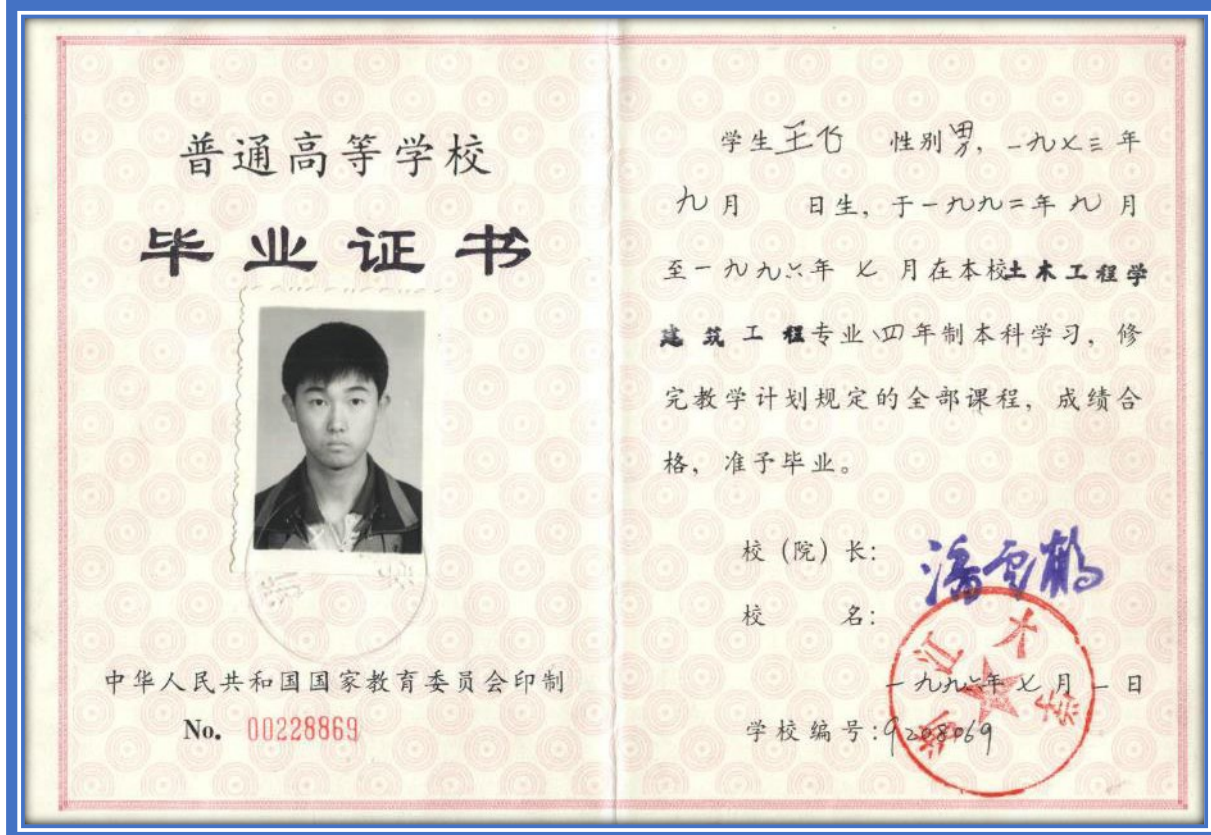 普通高等学校
毕业证书
中华人民共和国国家教育委员会印制
No. 00228869
学生王飞 性别男，一九七三年
九月 日生，于一九九二年九月
至一九九六年七月在本校土木工程学
建筑工程专业四年制本科学习，修
完教学计划规定的全部课程，成绩合
格，准予毕业。
校（院）长：潘云鹤
校 名：
浙江大学
一九九六年七月一日
学校编号：9208069